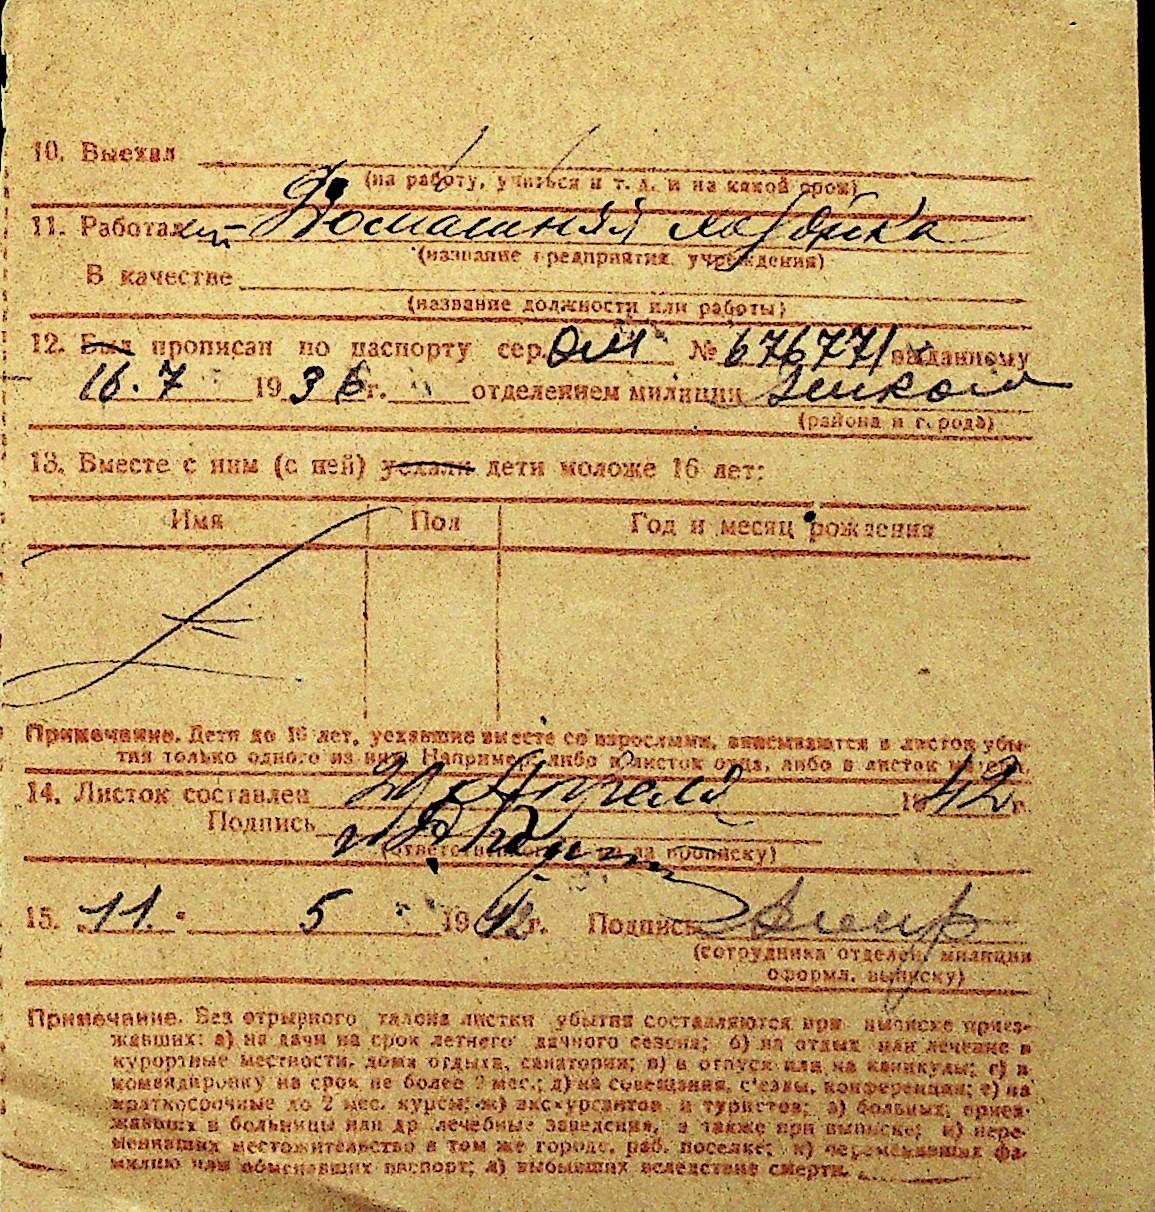 10. Выехал
(на работу, учиться и т. д. и на какой срок)
11. Работал Домашняя хозяйка
(название предприятия, учреждения)
В качестве
(название должности или работы)
12. Был прописан по паспорту сер. ОМ № 676771 выданному
16.7 1936 г. отделением милиции
(района и города)
13. Вместе с ним (с ней) уехали дети моложе 16 лет:
Имя Пол Год и месяц рождения
Примечание. Дети до 16 лет, уехавшие вместе со взрослыми, вписываются в листок убы-
тия только одного из них. Например, либо в листок отца, либо в листок матери.
14. Листок составлен Апреля 1942 г.
Подпись
(ответственного за прописку)
15. 11. 5 1942 г. Подпись
(сотрудника отделен. милиции
оформл. выписку)
Примечание. Без отрывного талона листки убытия составляются при выписке приез-
жавших: а) на дачи на срок летнего дачного сезона; б) на отдых или лечение в
курортные местности, дома отдыха, санатории; в) в отпуск или на каникулы; г) в
командировку на срок не более 2 мес.; д) на совещания, с'езды, конференции; е) на
краткосрочные до 2 мес. курсы; ж) экскурсантов и туристов; з) больных, приез-
жавших в больницы или др. лечебные заведения, а также при выписке; и) пере-
менивших местожительство в том же городе, раб. поселке; к) переменивших фа-
милию или обменявших паспорт; л) выбывших вследствие смерти.